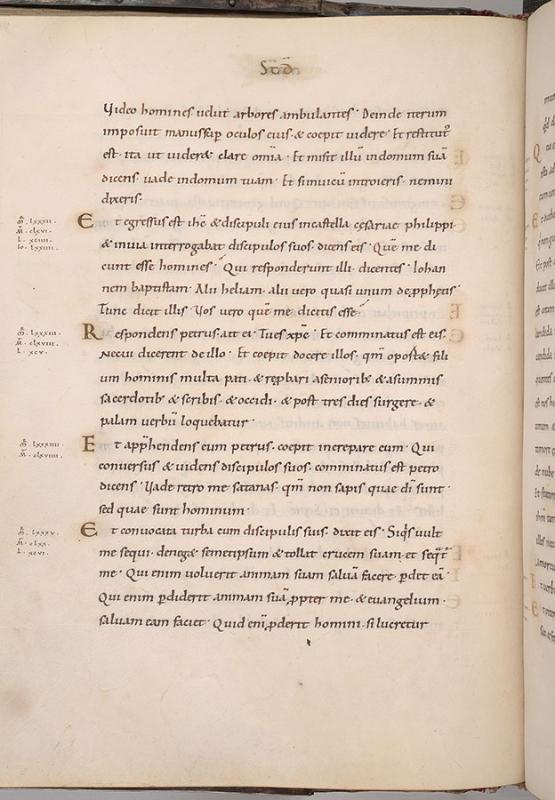 Scd
Video homines velut arbores ambulantes · Deinde iterum
imposuit manus sup oculos eius · & coepit videre · Et restitut᷒
est · ita ut videre& clare om̄ia · Et misit illū indomum suā
dicens · uade indomum tuam · Et siinuicū introieris · nemini
dixeris·
Et egressus est ihc̄ & discipuli eius incastella cesariae philippi ·
& inuia interrogabat discipulos suos · dicens eis · Quē me di
cunt esse homines · Qui responderunt illi · dicentes · Iohan
nem baptistam · Alii heliam · alii uero quasi unum de pphetis
Tunc dicit illis Vos uero quē me dicitis esse ·
Respondens petrus · ait ei · Tu es xp̄c · Et comminatus est eis ·
Necui dicerent de illo · Et coepit docere illos · qm̄ oport& fili
um hominis multa pati · & repbari asenioribꝰ & asummis
sacerdotibꝰ & scribis · & occidi · & post tres dies surgere · &
palam uerbū loquebatur ·
Et app̄hendens eum petrus · coepit increpare eum · Qui
conuersus & uidens discipulos suos · comminatus est petro
dicens · Vade retro me satanas · qm̄ non sapis quae dī sunt ·
sed quae sunt hominum ·
Et conuocata turba cum discipulis suis · dixit eis · Siqs uult
me sequi · deneg& semetipsum & tollat crucem suam · et seqt᷒
me · Qui enim uoluerit animam suam saluā facere · pdet eā ·
Qui enim pdiderit animam suā ppter me · & euangelium ·
saluam eam faciet · Quid enī pderit homini · si lucretur
m̄ · lxxxii ·
m̄ · clxvi ·
l · xciiii ·
io · lxxiiii ·
m̄ · lxxxiii ·
m̄ · clxviii ·
l · xcv ·
m̄ · lxxxiiii ·
m̄ · clxviiii ·
m̄ · lxxxv ·
m̄ · clxx ·
l · xcvi ·